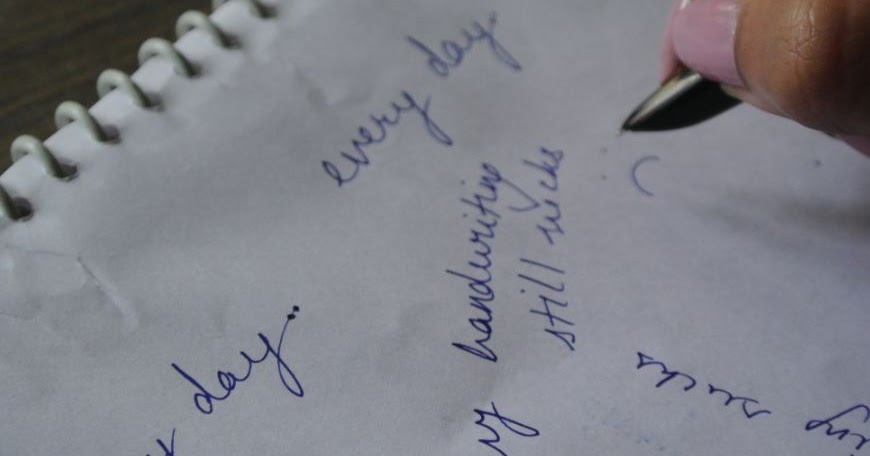 every day.
handwriting
still sucks
day..
sucks